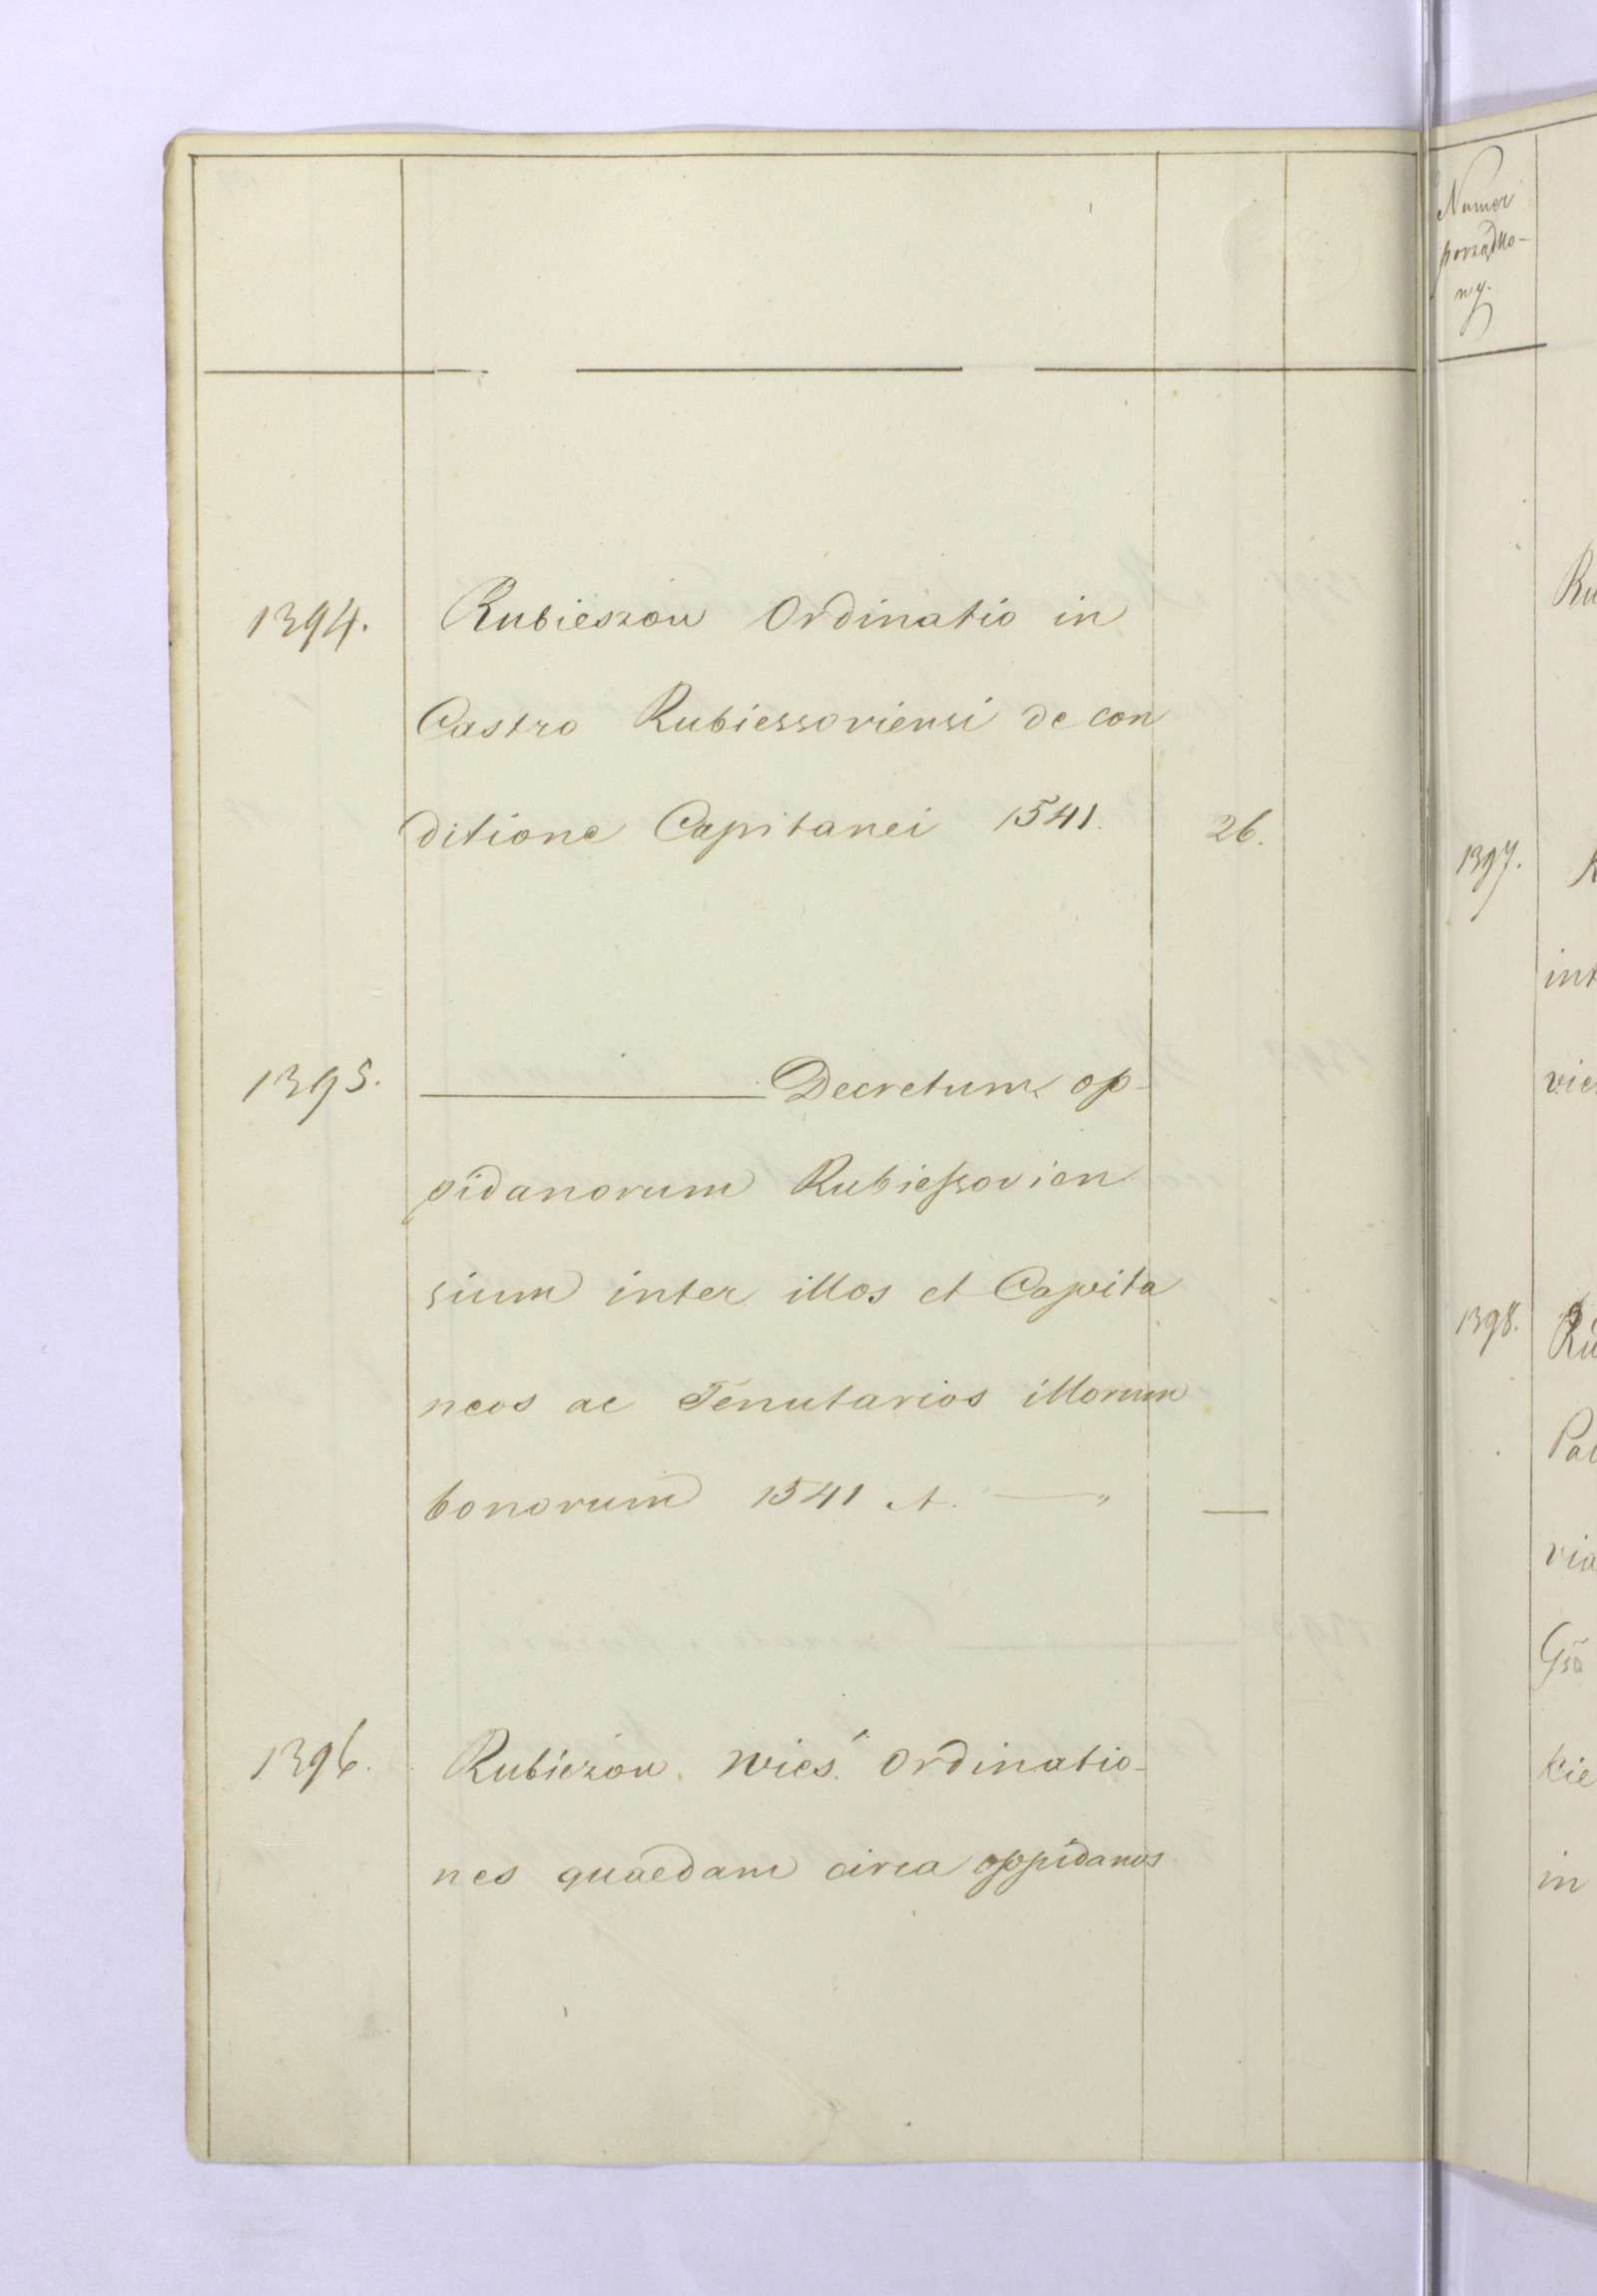 1394. Rubieszow Ordinatio in
Castro Rubiessoviensi de con
ditione Capitanei 1541. 26.
1395. ——— Decretum op-
pidanorum Rubieszovien
sium inter illos et Capita
neos ac Tenutarios illorum
bonorum 1541 A. — " —
1396. Rubiezow wieś Ordinatio-
nes quaedam circa oppidanos
Numer
porządko-
wy.
Ru
1397.
int
vie
1398. Ru
Pac
via
Gsa
kie
in